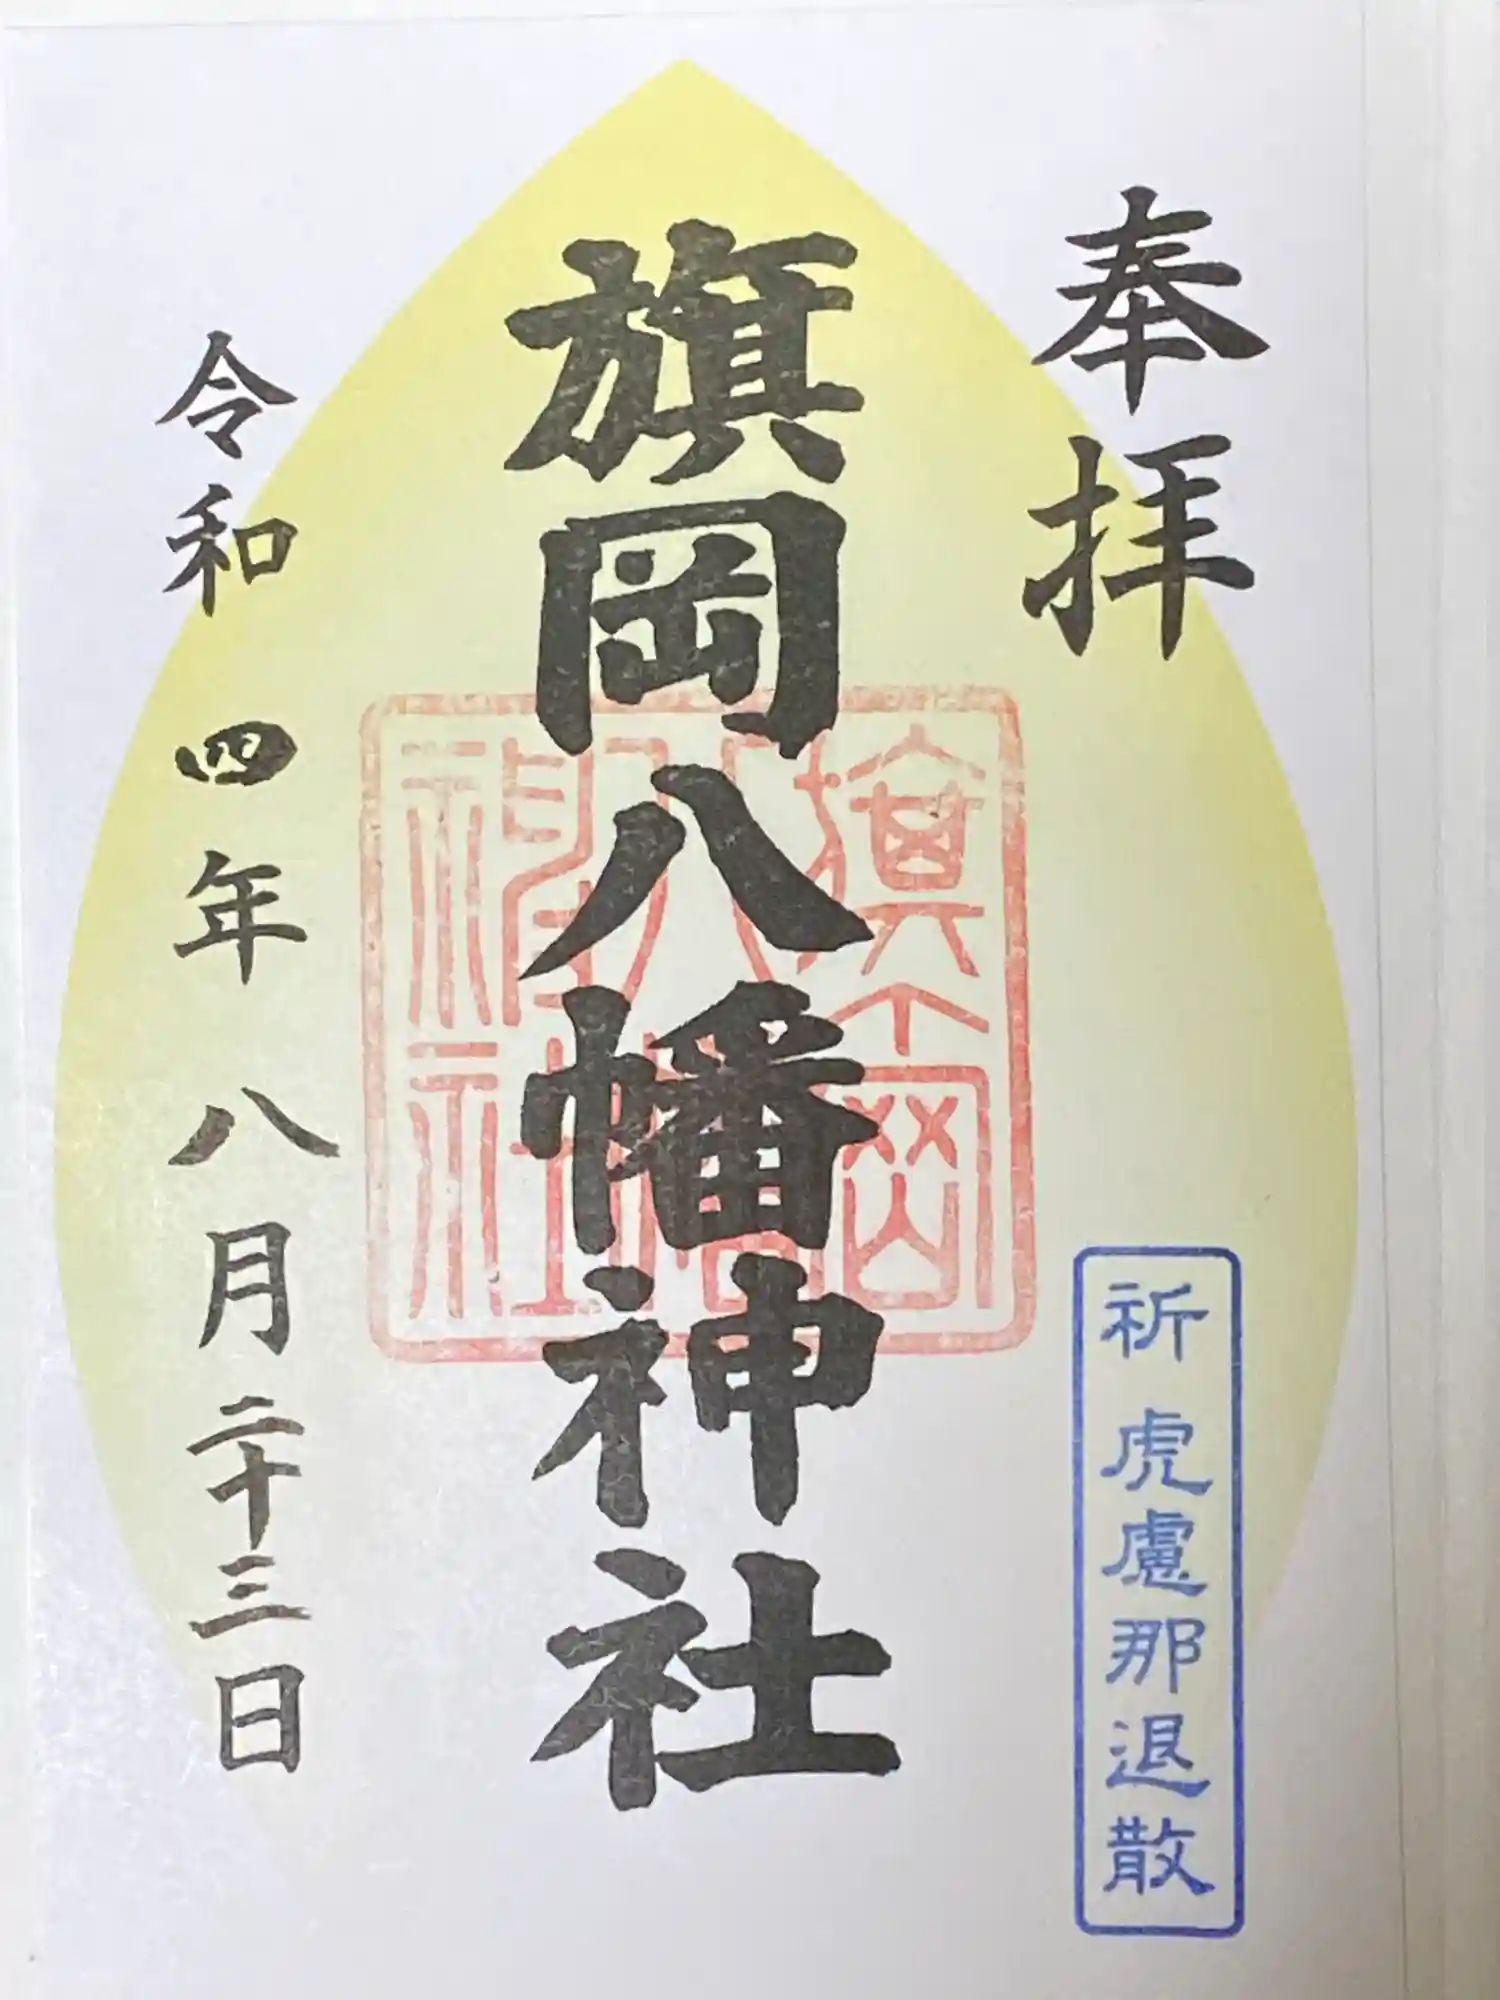 奉拝
祈 虎慮那退散
旗岡八幡神社
旗岡八幡神社
令和四年八月二十三日